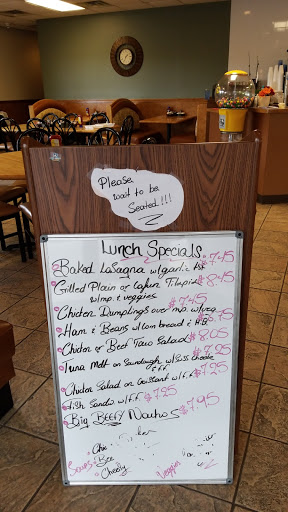 Please
wait to be
Seated!!!
Lunch Specials
Baked Lasagna w/garlic $7.45
Grilled Plain or Cajun Tilapia $8.45
w/mp & veggies
Chicken Dumplings over mp w/veg $7.45
Ham & Beans w/corn bread & H.B.
Chicken or Beef Taco Salad $8.05
Tuna Melt on Sourdough w/Swiss cheese $7.25
f.f.
Chicken Salad on Croissant w/f.f. $7.25
Fish Sandw. w/f.f. $7.25
Big BEEFY Nachos $7.95
Soups
Veggies